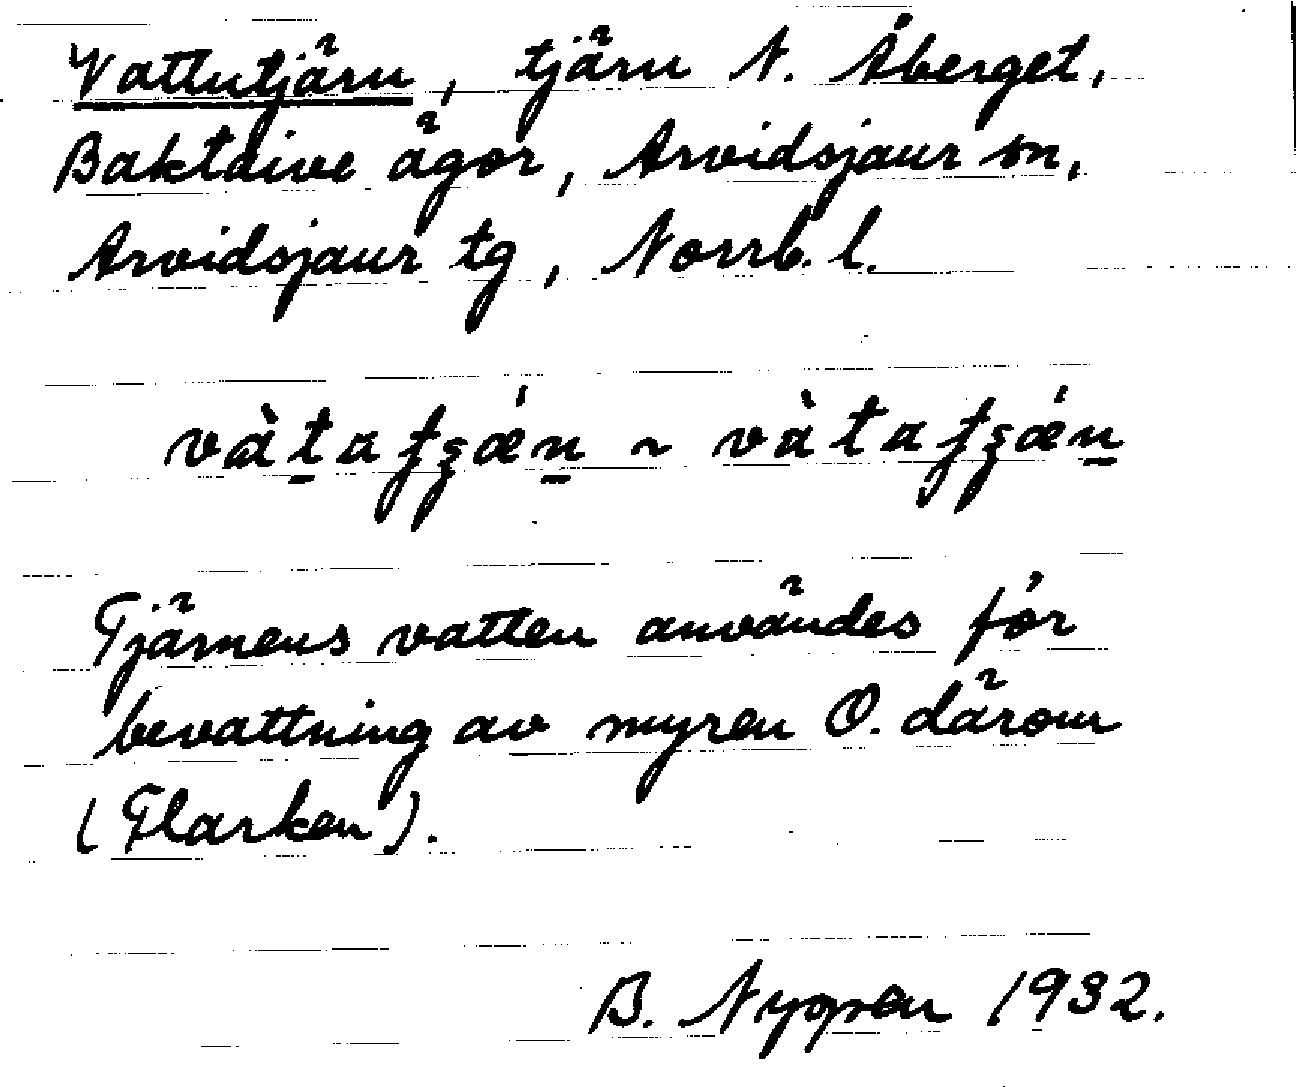 Vattutjärn, tjärn N. Åberget,
Baktaive ägor, Arvidsjaur sn,
Arvidsjaur tg, Norrb. l.
Tjärnens vatten användes för
bevattning av myren O. därom
(Flarken).
B. Nygren 1932.